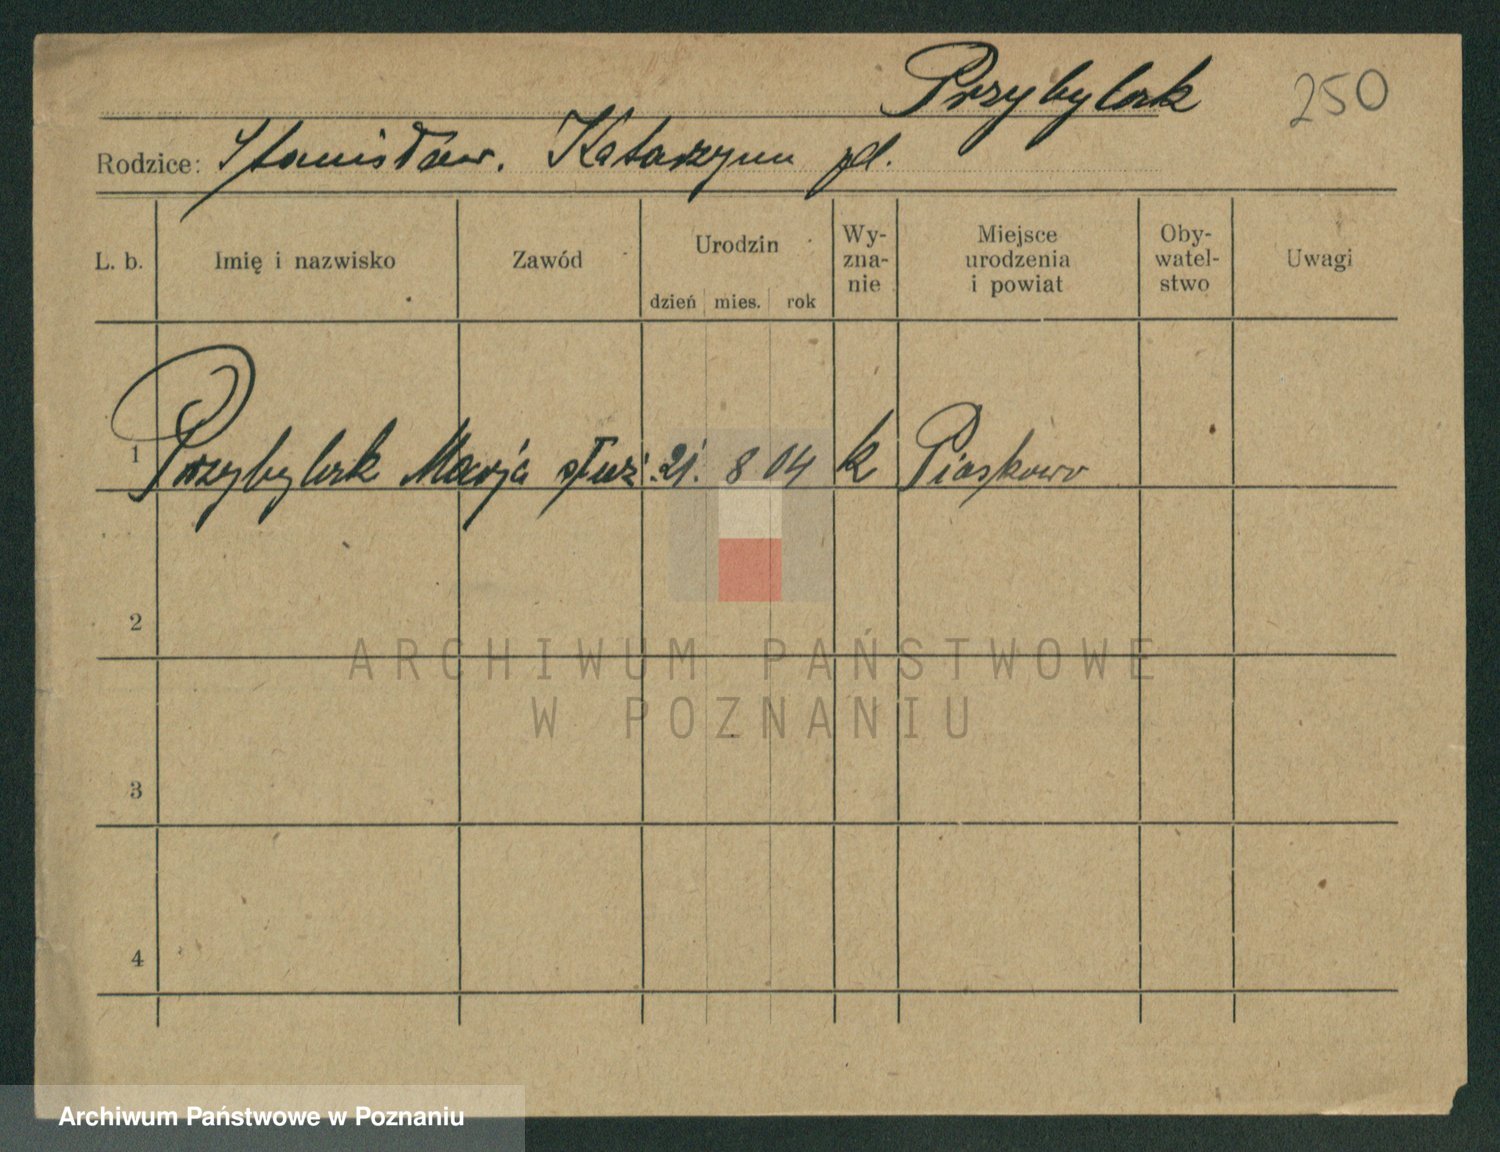 Przybylak 250
Rodzice: Stanisław. Katarzyna
L. b. Imię i nazwisko Zawód Urodzin dzień mies. rok Wy-zna-nie Miejsce urodzenia i powiat Oby-watel-stwo Uwagi
1 Przybylak Marja służ. 21. 8 04 k Piaskowo
2
ARCHIWUM PAŃSTWOWE
W POZNANIU
3
4
Archiwum Państwowe w Poznaniu